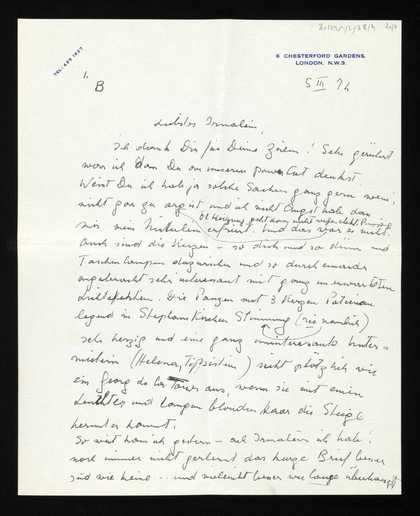 TEL: 435 1427
6 CHESTERFORD GARDENS,
LONDON, N.W.3.
1.
B
5 III 72
Liebstes Irmalein,
ich dank Dir für Deine Zeilen! Sehr gerührt
war ich dass Du an unseren power Cut denkst.
Weist Du ich hab ja solche Sachen ganz gern wenn
nicht gar zu arg ist und ich nicht Angst hab dass
ob Heizung geht wenn nicht
mir mein erfriert. Und dies war es nicht.
Auch sind die Kerzen — so dick und so dünn und
Taschenlampen dazwischen und so durcheinander
angebracht sehr interessant mit ganz unerwarteten
Lichteffekten. Die Panzen mit 3 Kerzen Patience
legend in Stephanskirchen Stimmung (sie nämlich)
sehr herzig und eine ganz uninteressante Unter-
mieterin (Helena, Typistin) sieht plötzlich wie
ein Georg de la Tour aus, wenn sie mit einem
Leuchter und langen blonden Haar die Stiege
herunter kommt.
So weit kam ich gestern — ach Irmalein ich hab
noch immer nicht gelernt dass kurze Briefe besser
sind wie keine — und vielleicht besser wie lange überhaupt